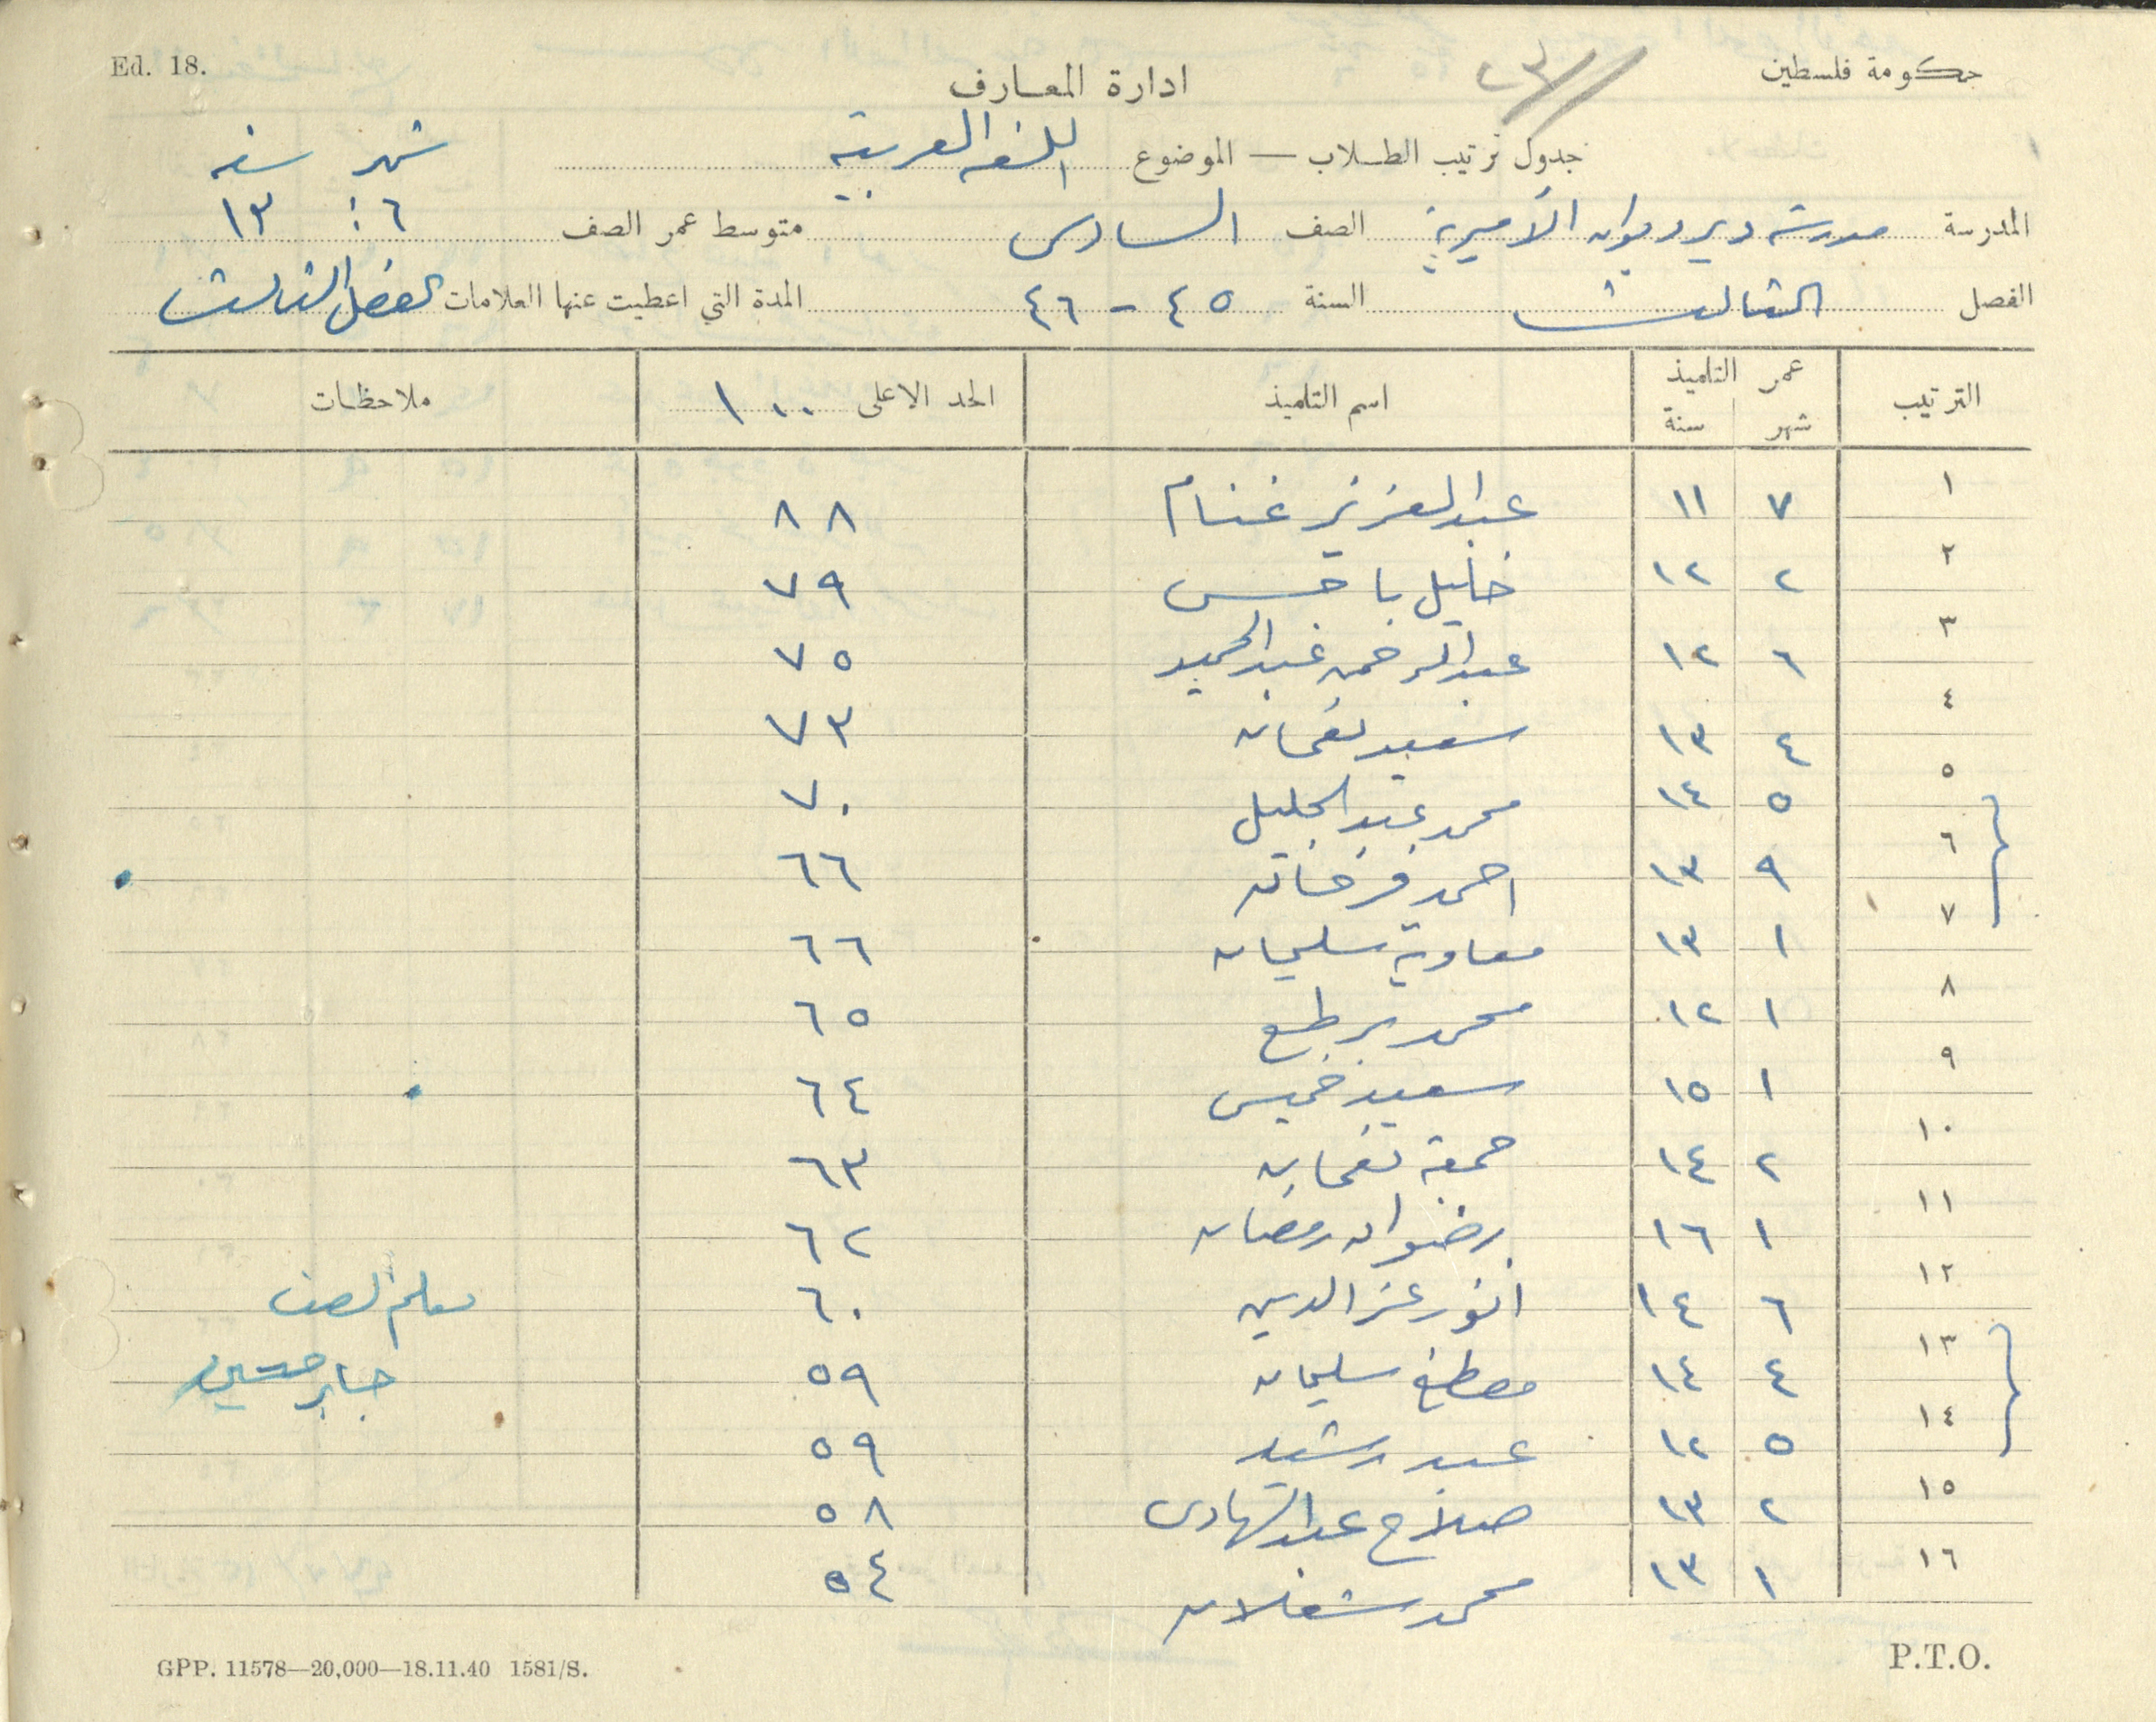 Ed. 18.
حكومة فلسطين
ادارة المعارف
جدول ترتيب الطلاب — الموضوع اللغه العربية
شهر سنه
المدرسة مدرسة دير ديوان الأميرية الصف السادس متوسط عمر الصف ٦ : ١٣
الفصل الثالث السنة ٤٥ - ٤٦ المدة التي اعطيت عنها العلامات الفصل الثالث
الترتيب عمر التلميذ اسم التلميذ الحد الاعلى ١٠٠ ملاحظات
شهر سنة
١ ٧ ١١ عبد العزيز غنام ٨٨
٢ ٢ ١٢ خليل با حسن ٧٩
٣ ٦ ١٢ عبد الرحمن عبد الحميد ٧٥
٤ ٤ ١٣ سعيد نعمان ٧٣
٥ ٥ ١٤ محمد عبد الجليل ٧٠
٦ ٩ ١٣ احمد فرحان ٦٦
٧ ١ ١٣ معاوية سليمان ٦٦
٨ ١ ١٢ محمد ٦٥
٩ ١ ١٥ سعيد خميس ٦٤
١٠ ٢ ١٤ جمعة نعمان ٦٣
١١ ١ ١٦ رضوان رمضان ٦٢
١٢ ٦ ١٤ انور عز الدين ٦٠ معلم الصف
١٣ ٤ ١٤ مصطفى سليمان ٥٩ جابر حسين
١٤ ٥ ١٢ عبد رشيد ٥٩
١٥ ٢ ١٣ صلاح عبد الهادى ٥٨
١٦ ١ ١٣ محمد شعلان ٥٤
GPP. 11578—20,000—18.11.40 1581/S.
P.T.O.